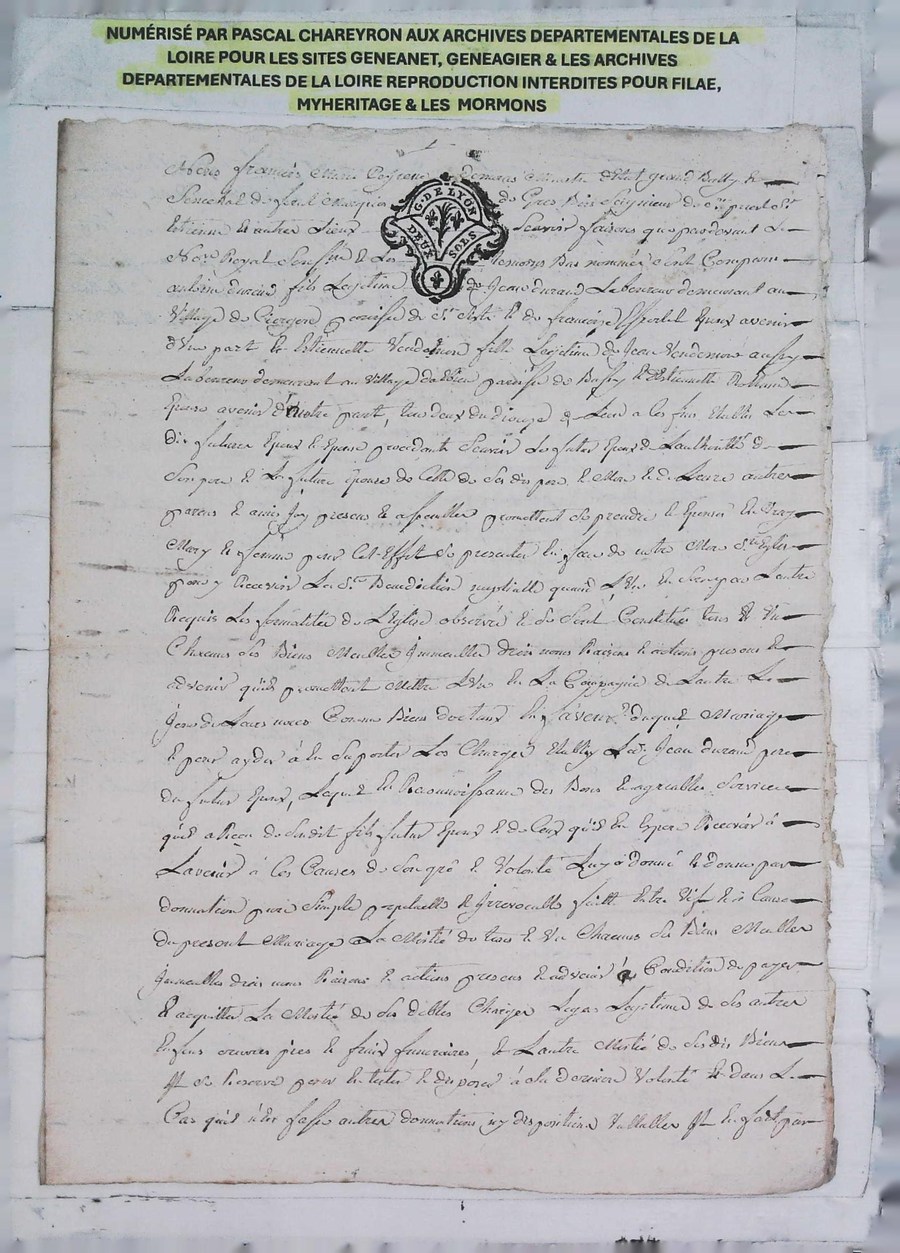 NUMÉRISÉ PAR PASCAL CHAREYRON AUX ARCHIVES DEPARTEMENTALES DE LA
LOIRE POUR LES SITES GENEANET, GENEAGIER & LES ARCHIVES
DEPARTEMENTALES DE LA LOIRE REPRODUCTION INTERDITES POUR FILAE,
MYHERITAGE & LES MORMONS
Nous françois Marie grand Bailly &
Senechal de foret Marquis
G. DE LYON
DEUX SOLS
et autres Lieux Scavoir faisons que pardevant Le
No.re Royal & Les temoins Bas nommés sont Comparu
antoine durand fils Legitime de Jean durand Laboureur demeurant au
Village de paroisse de St. & de françoise Epoux avenir
d'Une part & Estiennette fille Legitime de Jean aussy
Laboureur demeurant au Village de paroisse de Bussy & d'Estiennette
Epouse avenir d'autre part, tous deux du diocese de Lion a ces fins Etablis Les
dis futurs Epoux & Epouse procedant Scavoir Le futur Epoux de Lauthorité de
Son pere & La future épouse de Celle de Ses dis pere & Mere & de Leurs autres
parens & amis Icy presens & assembles promettent Se prendre & Epouser En Vray
Mary & femme pour Cet Effet Se presenter En face de notre Mere Ste Eglise
pour y Recevoir La Ste Benediction nuptialle quand L'Un En Sera par Lautre
Requis Les formalités de L'Eglise observée & Se Sont Constitués tous & Un
Chacuns Ses Biens Meubles Immeubles droits noms Raisons & actions presens &
advenir qu'ils promettent Mettre L'Un En La Compagnie de Lautre Le
Jour de Leurs noces Comme Biens doctaux En faveur duquel Mariage
& pour ayder à En Suporter Les Charges Etably Led. Jean durand pere
du futur Epoux, Lequel En Reconnoissance des Bons & agreables Services
qu'il a Reçu de Sondit fils futur Epoux & de Ceux qu'il En Espere Recevoir à
Lavenir à Ces Causes de Son gré & Volonté Luy a donné & donne par
donnation pure Simple perpetuelle & Irrevocable faitte Entre Vifs & à Cause
du present Mariage La Moitié de tous & Un Chacuns Ses Biens Meubles
Immeubles droits noms Raisons & actions presens & advenir à Condition de payer
& acquitter La Moitié de Ses debtes Charges Legas Legitimes de Ses autres
Enfens œuvres pies & frais funeraires, & Lautre Moitié de Ses dis Biens
Il Se Reserve pour En tester & disposer à Sa derniere Volonté & dans Le
Cas qu'il n'En fasse autres donnations ny dispositions Vallables Il En fait par